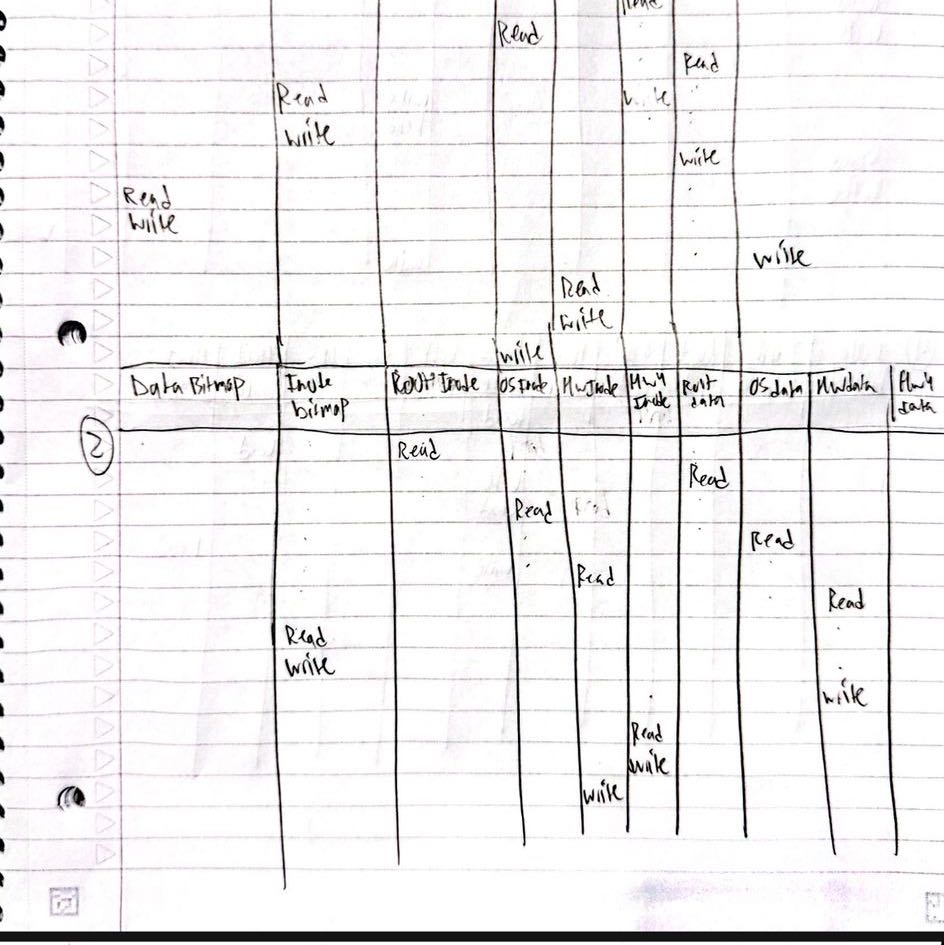 Read
Read
Read
Read
write
write
write
Read
write
write
Read
write
write
Data Bitmap Inode bitmap Root Inode OS Inode HW Inode HW4 Inode Root data OS data HW data HW4 data
2
Read
Read
Read
Read
Read
Read
Read
write
write
Read
write
write